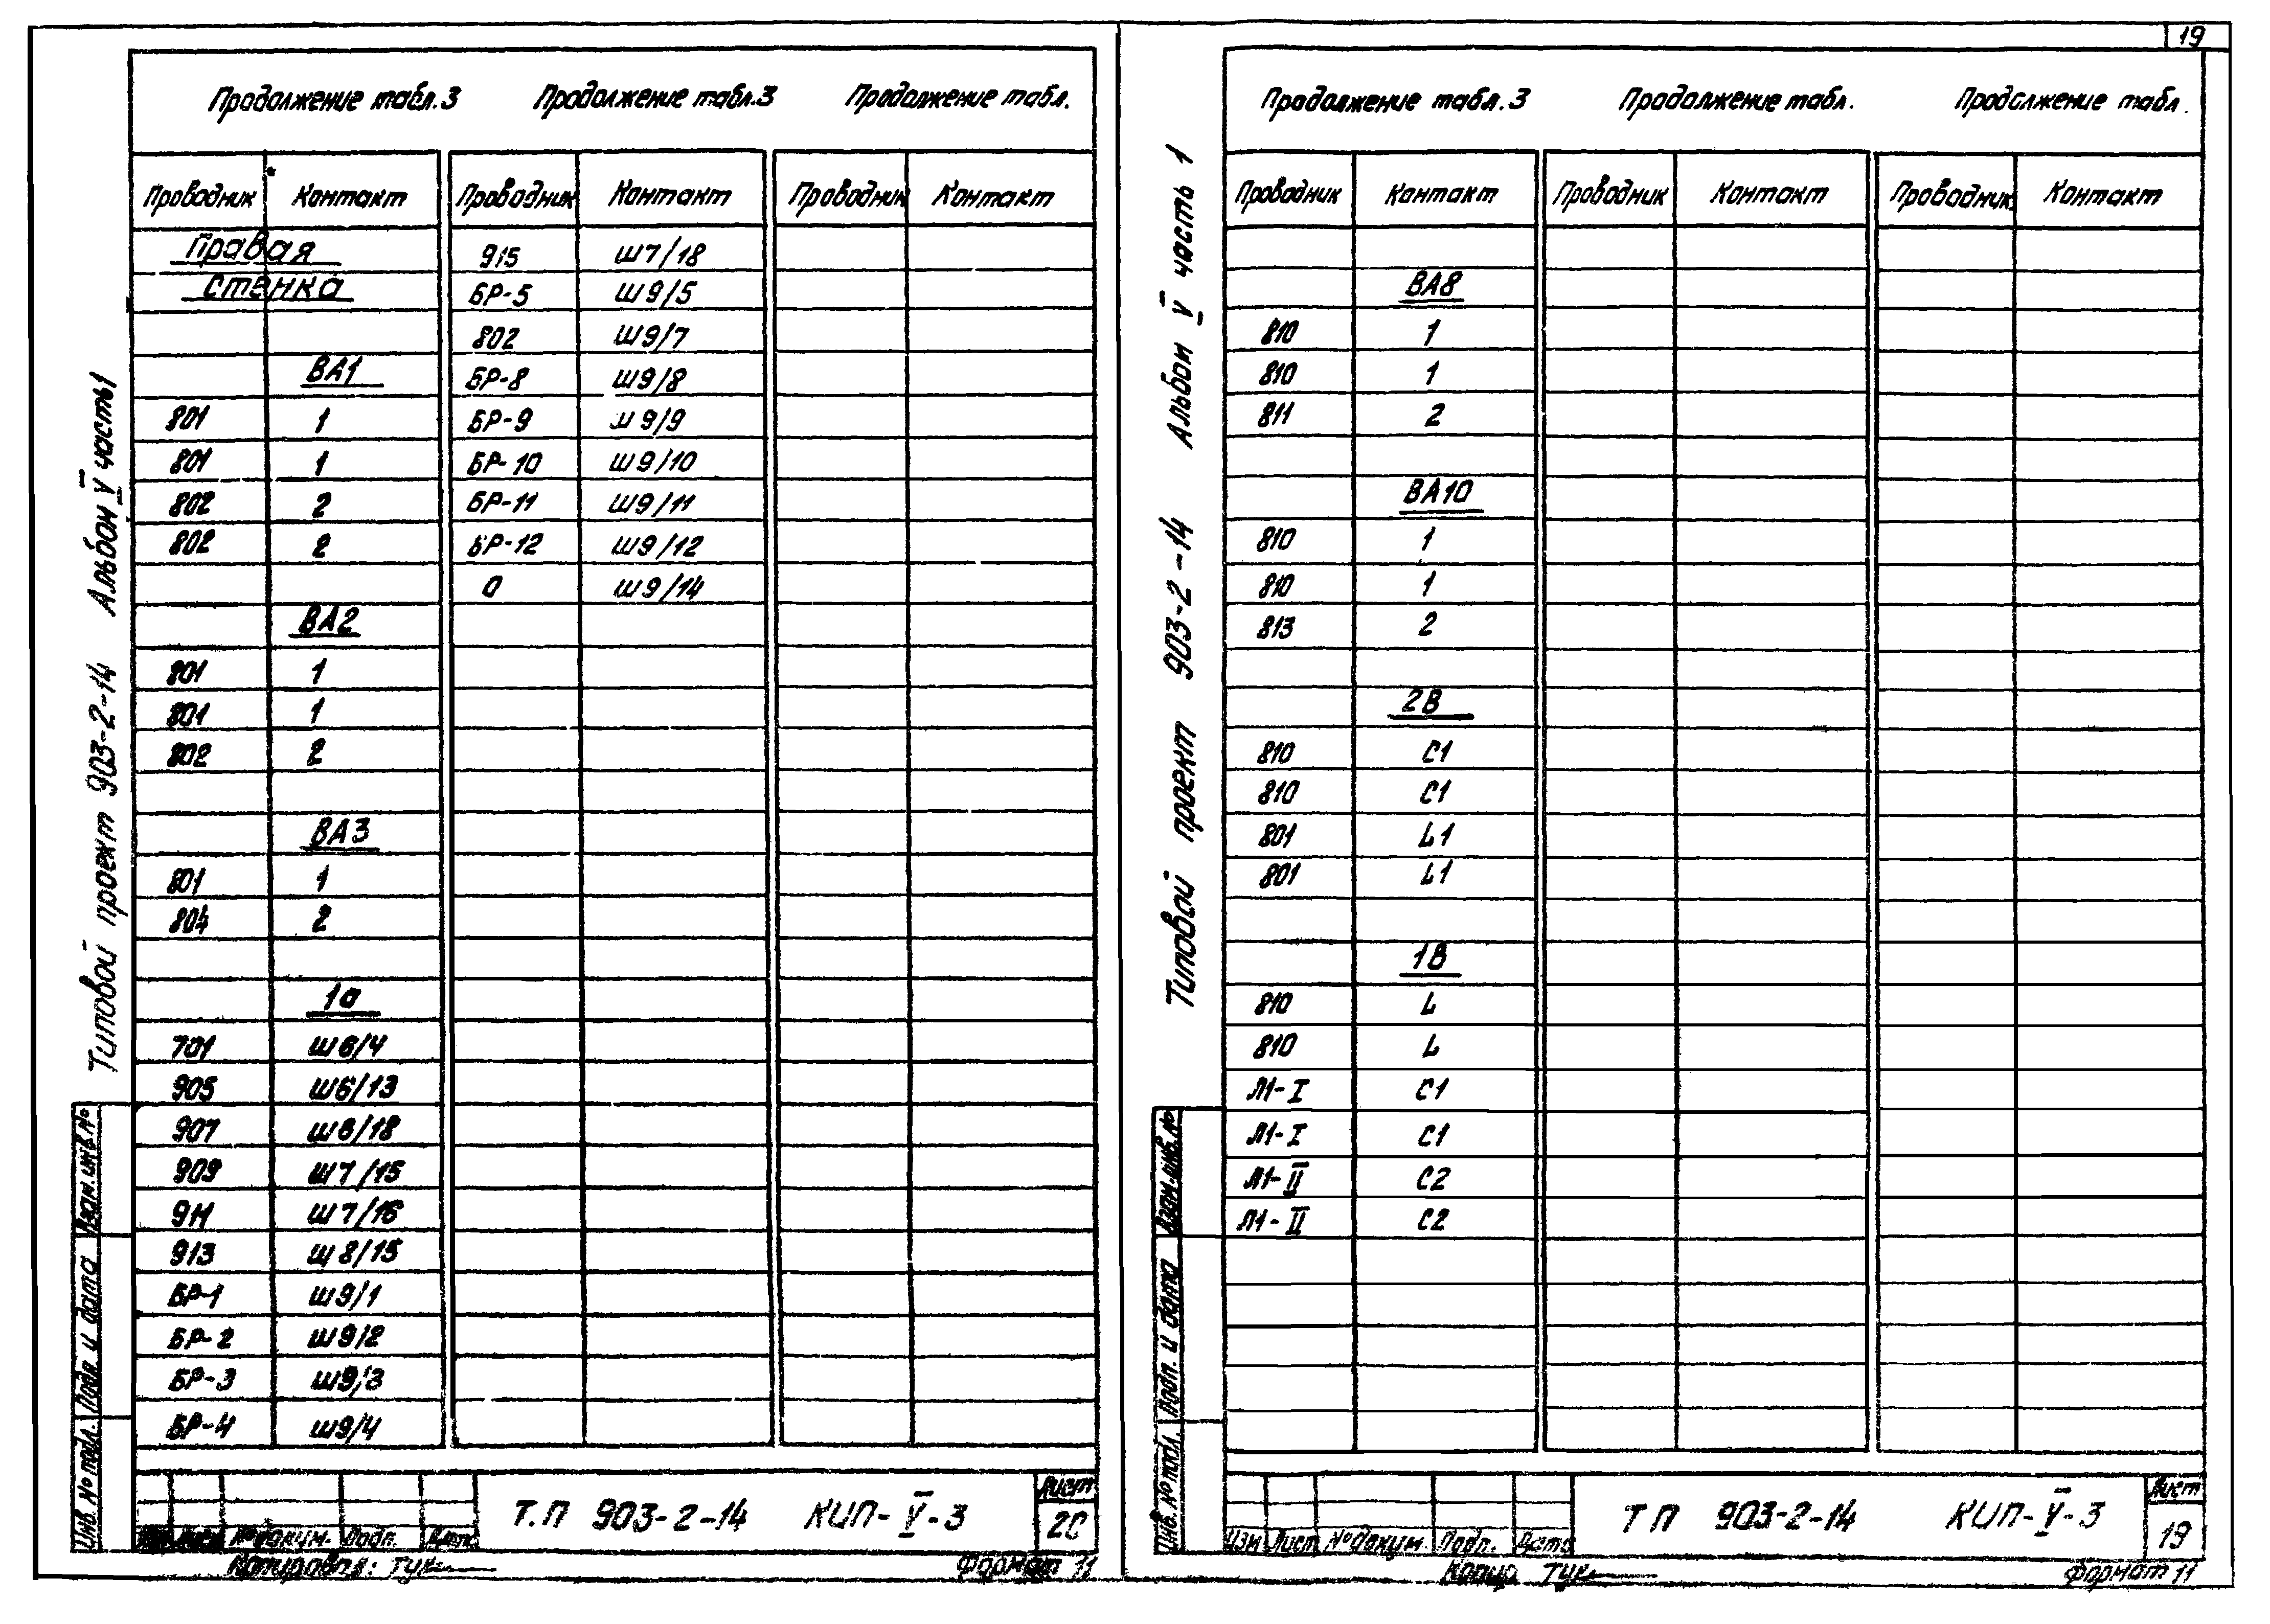 19
Типовой проект 903-2-14 Альбом V часть 1
Продолжение табл.3 Продолжение табл.3 Продолжение табл.
Проводник Контакт Проводник Контакт Проводник Контакт
Правая 915 Ш7/18
стенка БР-5 Ш9/5
802 Ш9/7
ВА1 БР-8 Ш9/8
801 1 БР-9 Ш9/9
801 1 БР-10 Ш9/10
802 2 БР-11 Ш9/11
802 2 БР-12 Ш9/12
0 Ш9/14
ВА2
801 1
801 1
802 2
ВА3
801 1
804 2
1а
701 Ш6/4
905 Ш6/13
907 Ш6/18
909 Ш7/15
911 Ш7/16
913 Ш8/15
БР-1 Ш9/1
БР-2 Ш9/2
БР-3 Ш9/3
БР-4 Ш9/4
Инв. № подл. Подп. и дата Взам. инв. №
Лист
Т.П 903-2-14 КИП-V-3
№ докум. Подп. Дата
Копировал: Тук
Формат 11
Типовой проект 903-2-14 Альбом V часть 1
Продолжение табл.3 Продолжение табл. Продолжение табл.
Проводник Контакт Проводник Контакт Проводник Контакт
ВА8
810 1
810 1
811 2
ВА10
810 1
810 1
813 2
2В
810 С1
810 С1
801 L1
801 L1
1В
810 L
810 L
Л1-I С1
Л1-I С1
Л1-II С2
Л1-II С2
Инв. № подл. Подп. и дата Взам. инв. №
Лист
ТП 903-2-14 КИП-V-3
19
Изм Лист № докум. Подп. Дата
Копир. Тук
Формат 11